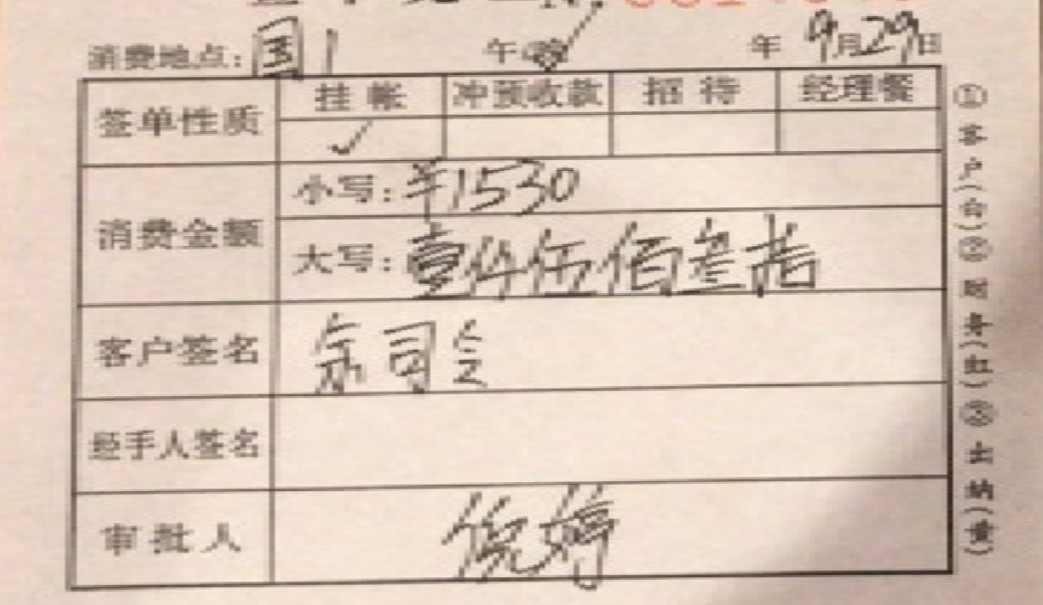 消费地点：国1 午晚 年 9月29日
签单性质 挂帐 冲预收款 招待 经理餐
✓
消费金额 小写：¥1530
大写：壹仟伍佰叁拾
客户签名 司令
经手人签名
审批人 倪婷
①客户(白)②财务(红)③出纳(黄)